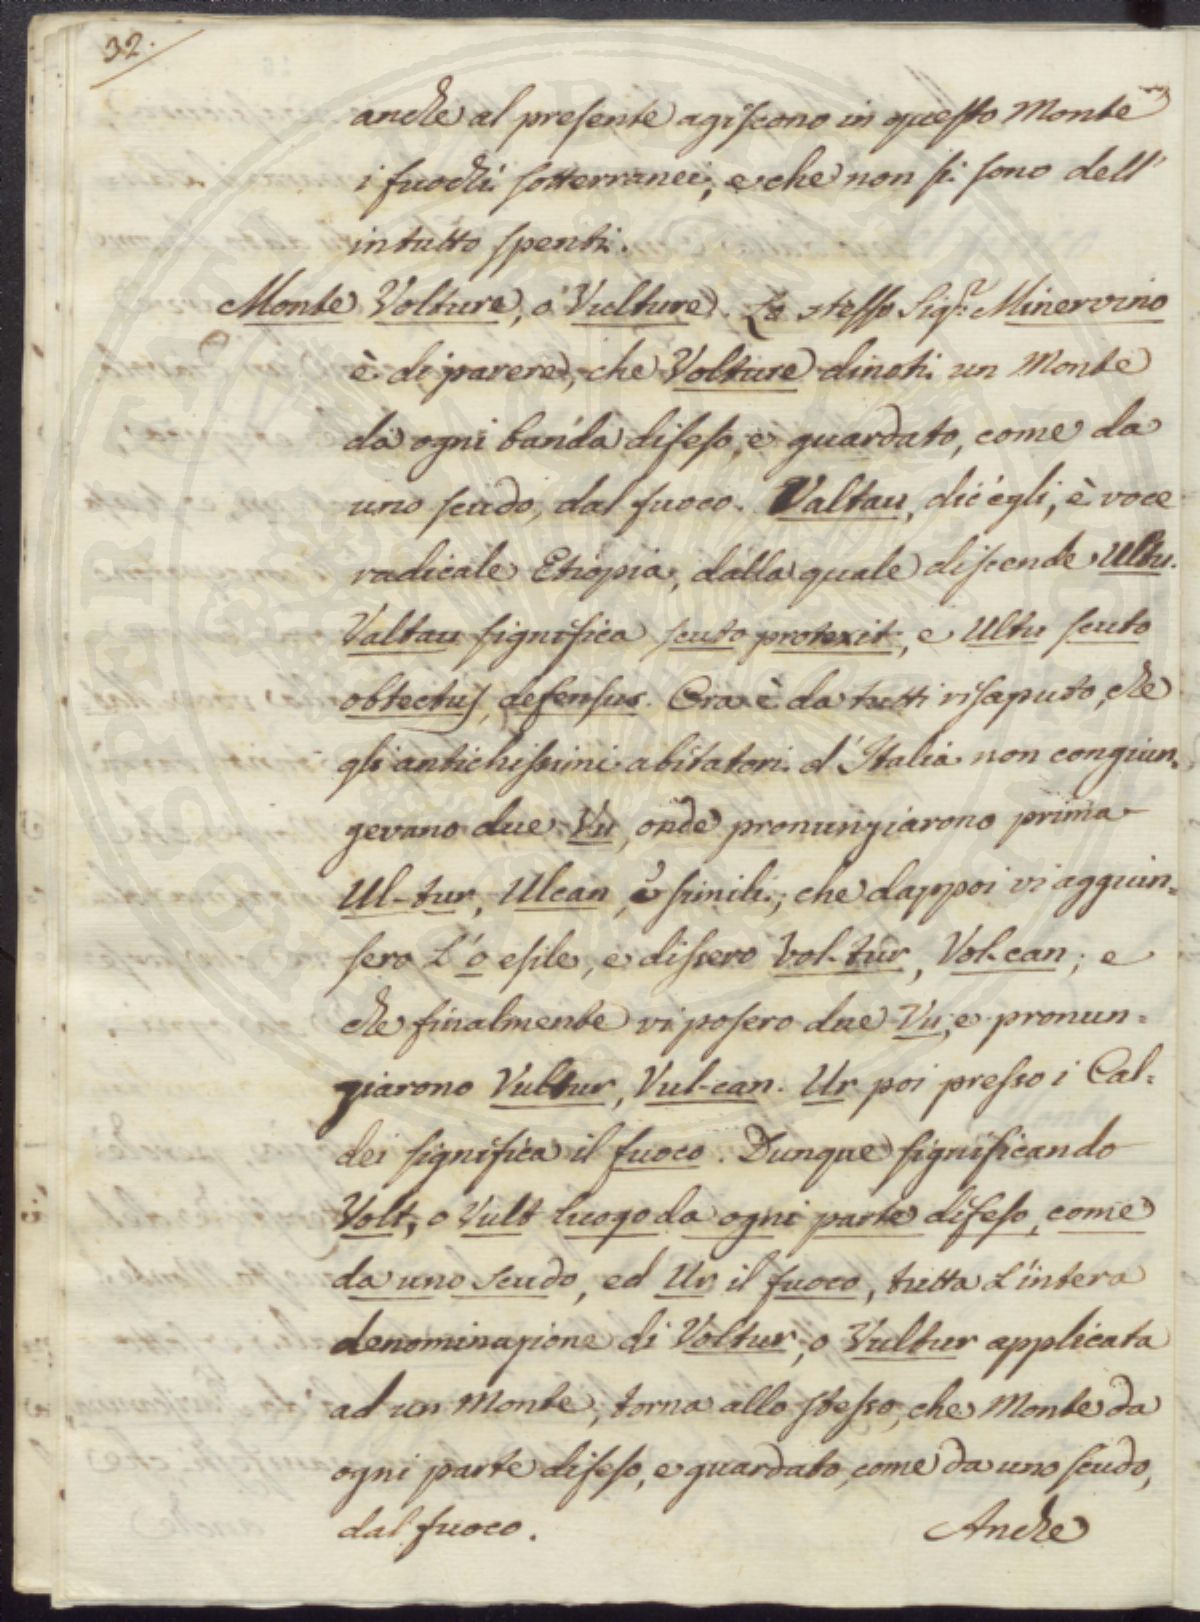 32.
anche al presente agiscono in questo Monte
i fuochi sotterranei, e che non si sono dell'
intutto spenti.
Monte Volture, o Vulture. Lo stesso Sig.r Minervino
è di parere, che Volture dinoti un Monte
da ogni banda difeso, e guardato, come da
uno scudo, dal fuoco. Valtau, dic'egli, è voce
radicale Etiopia, dalla quale discende Ultu.
Valtau significa scuto protexit, e Ultu scuto
obtectus, defensus. Ora è da tutti risaputo, che
gli antichissimi abitatori d'Italia non congiun=
gevano due Vu, onde pronunziarono prima
Ul-tur, Ulcan, e simili; che dappoi vi aggiun=
sero L'o esile, e dissero Vol-tur, Vol-can; e
che finalmente vi posero due Vu, e pronun=
ziarono Vultur, Vul-can. Ur poi presso i Cal=
dei significa il fuoco. Dunque significando
Volt, o Vult luogo da ogni parte difeso, come
da uno scudo, ed Ur il fuoco, tutta L'intera
denominazione di Voltur, o Vultur applicata
ad un Monte, torna allo stesso, che Monte da
ogni parte difeso, e guardato, come da uno scudo,
dal fuoco.
Anche